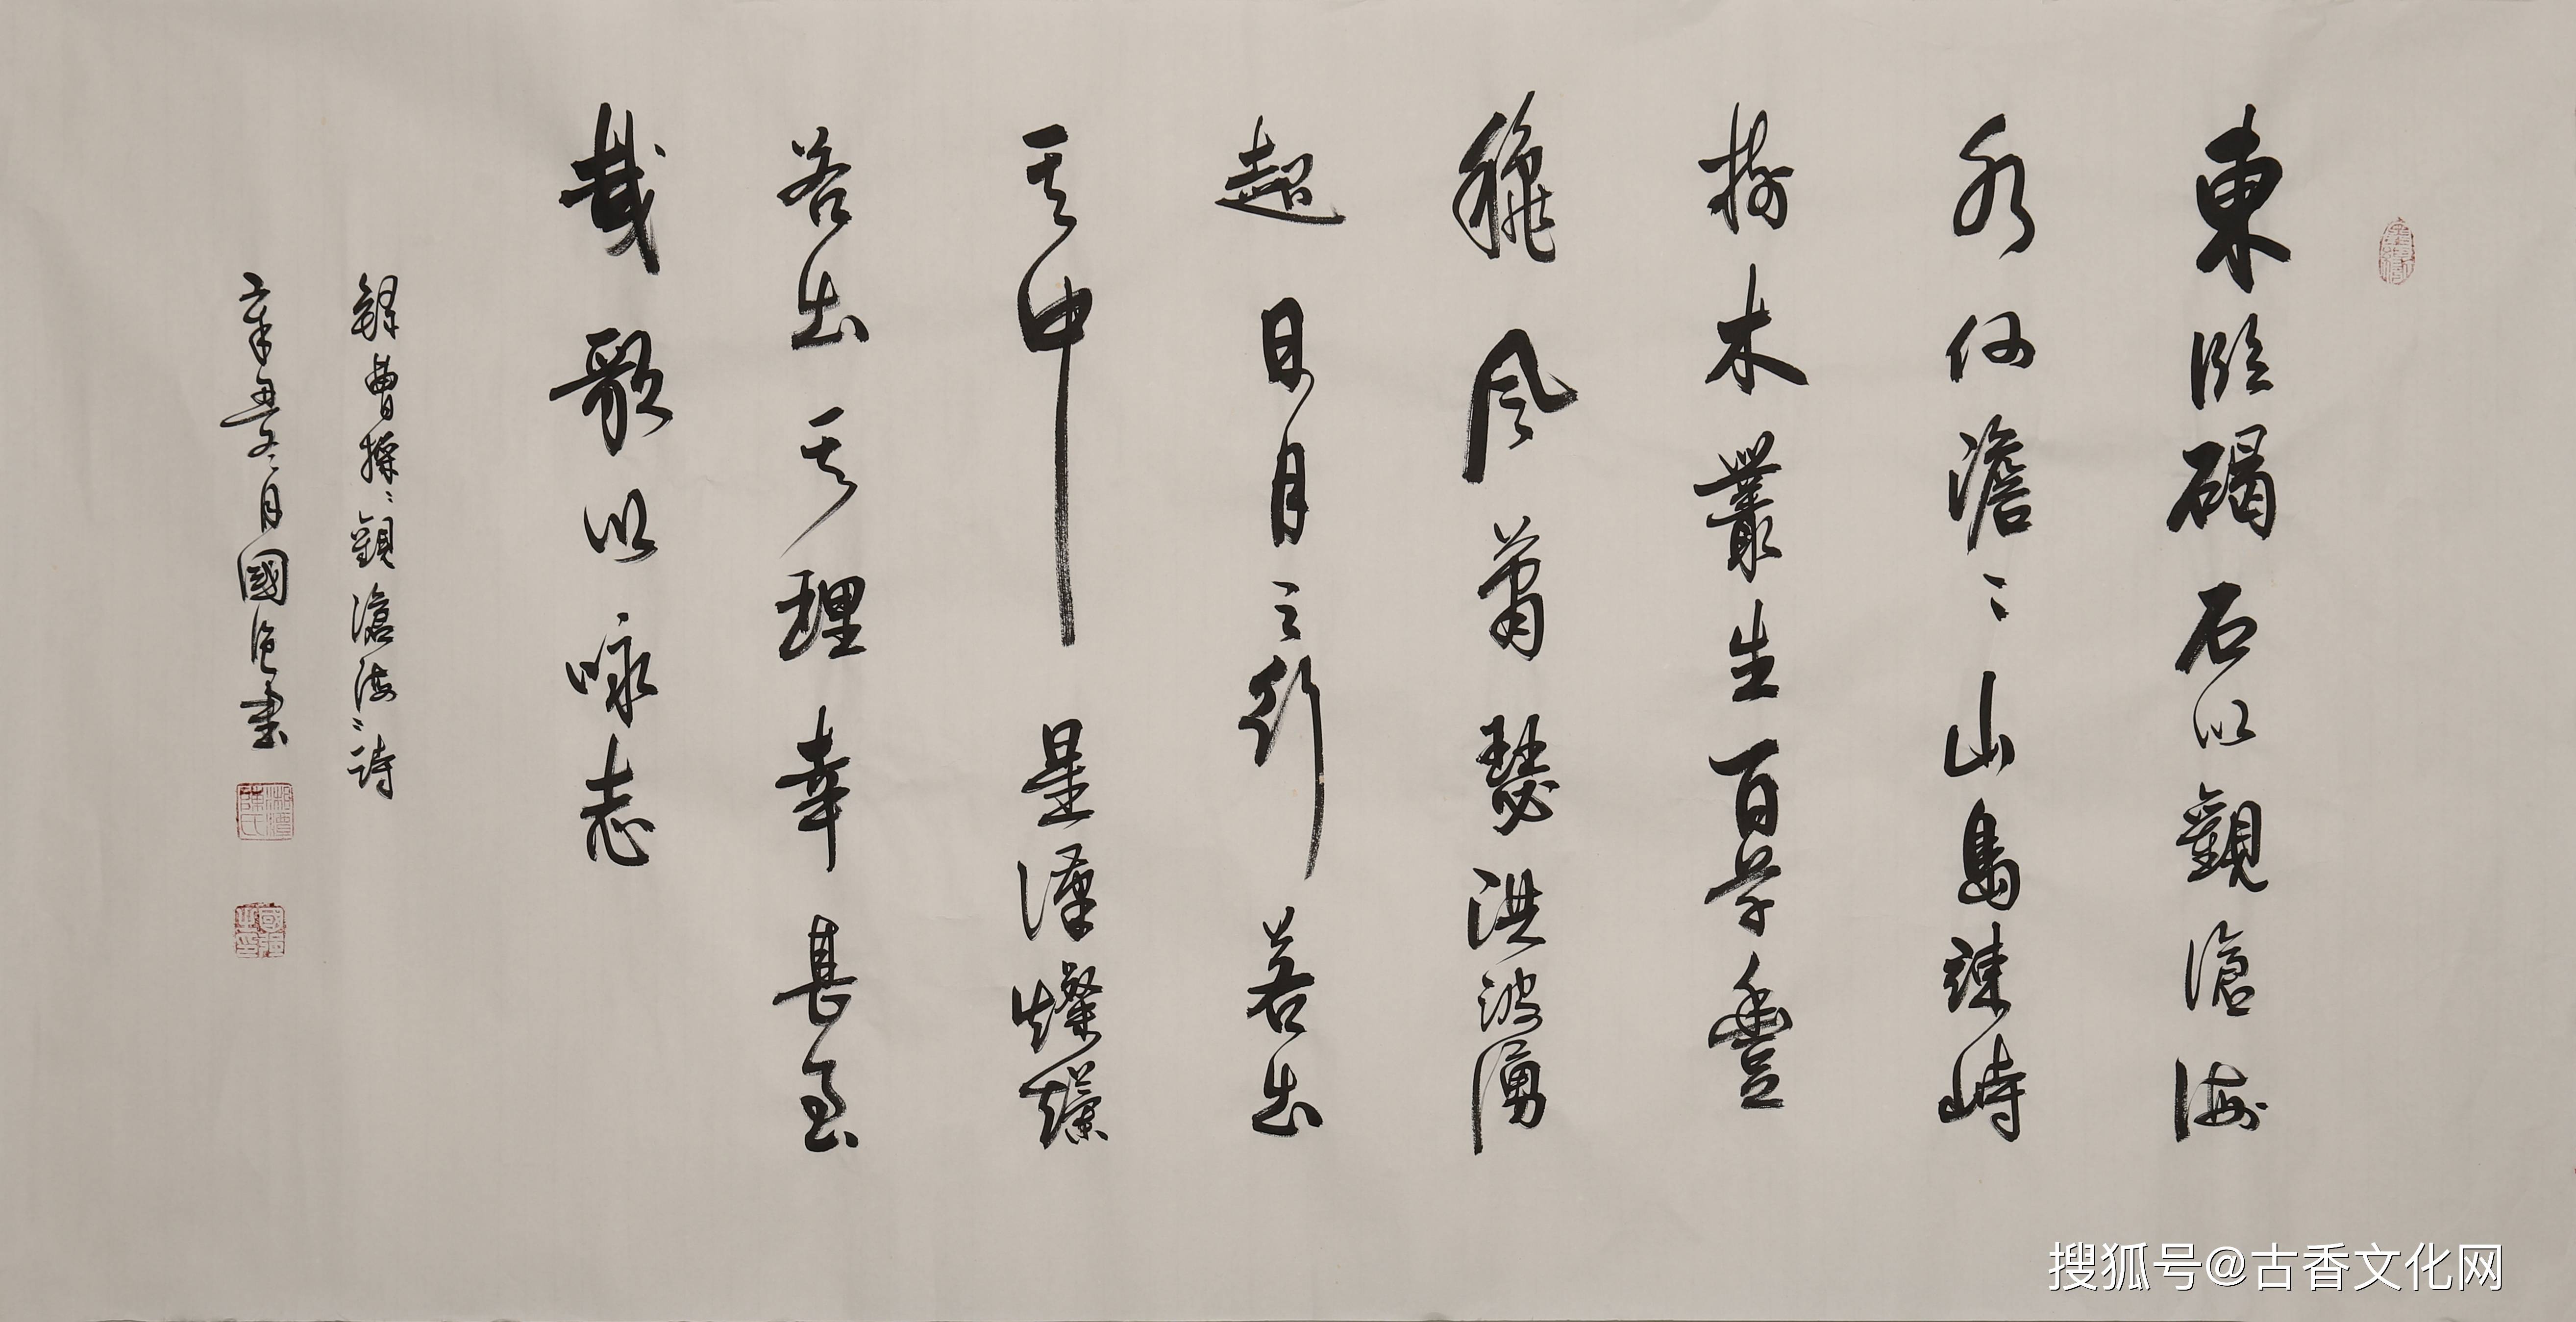 東臨碣石以觀滄海
水何澹〻山島竦峙
樹木叢生百草豐
穐風蕭瑟洪波湧
超日月之行若出
其中星漢燦爛
若出其理幸甚至
哉歌以咏志
錄曹操〻觀滄海〻詩
辛丑冬月國書
湘潭陳氏
搜狐号@古香文化网